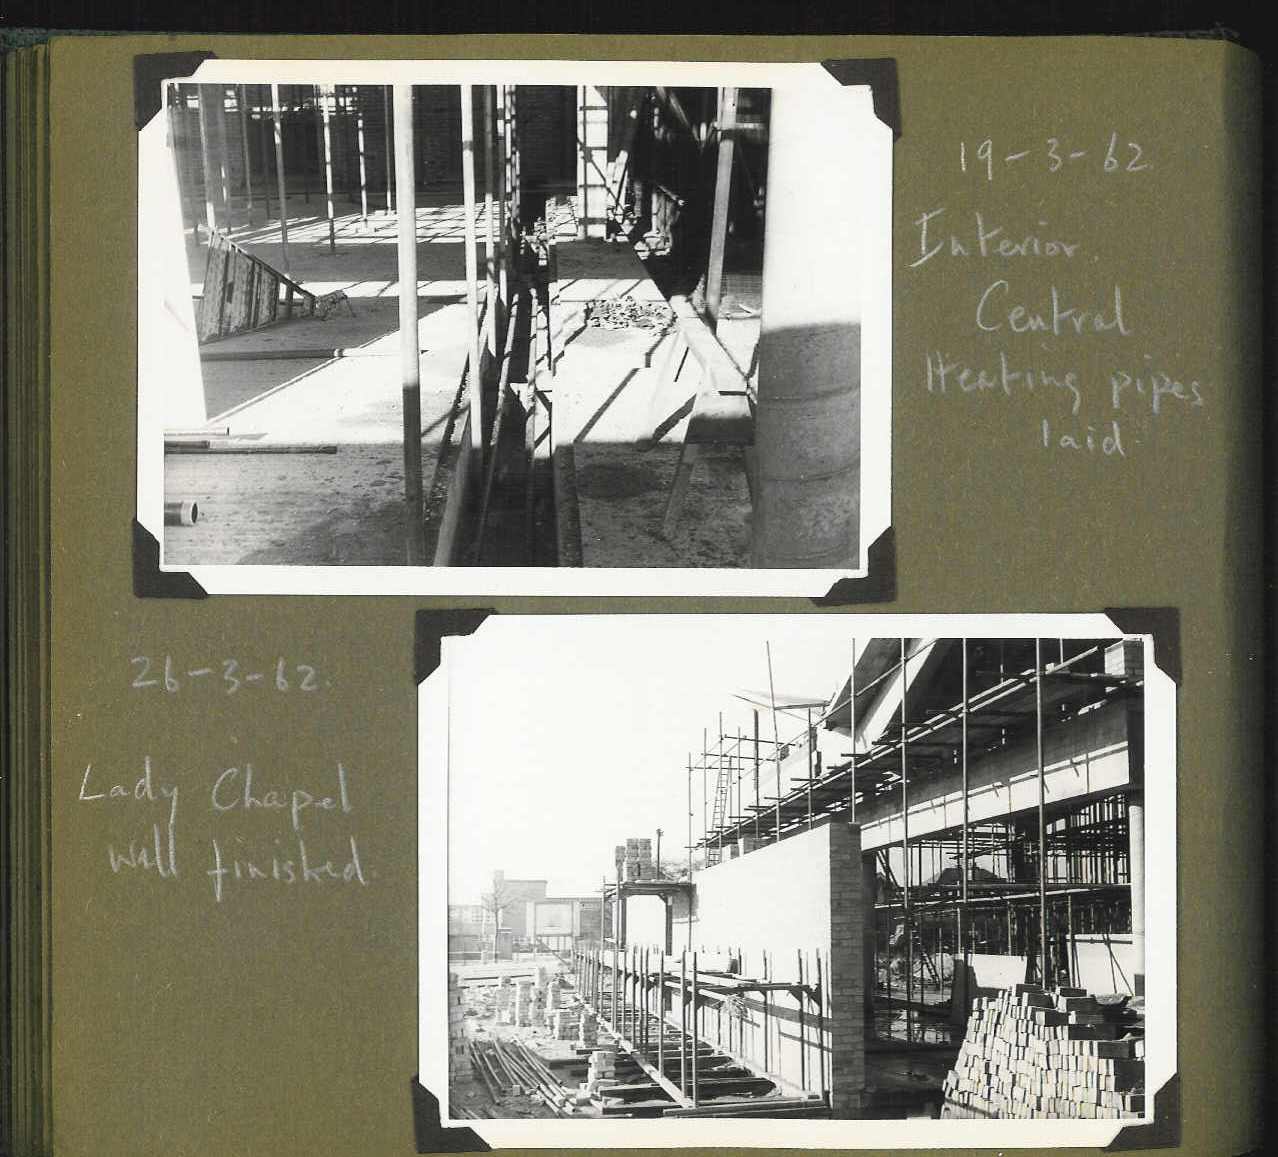 19-3-62.
Interior.
Central
Heating pipes
laid.
26-3-62.
Lady Chapel
wall finished.